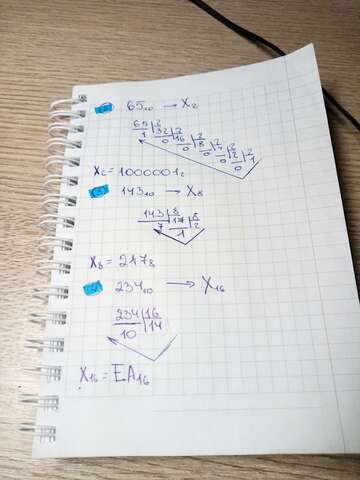 65₁₀ → X₂
65 2
1 32 2
0 16 2
0 8 2
0 4 2
0 2 2
0 1
X₂ = 1000001₂
143₁₀ → X₈
143 8
7 17 8
1 2
X₈ = 217₈
234₁₀ → X₁₆
234 16
10 14
X₁₆ = EA₁₆